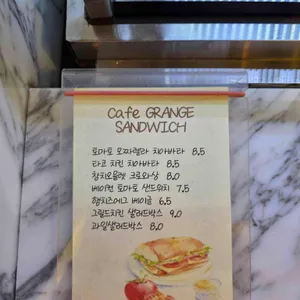 Cafe GRANGE
SANDWICH
토마토 모짜렐라 치아바타 8.5
타코 치킨 치아바타 8.5
참치오믈렛 크로와상 8.0
베이컨 토마토 샌드위치 7.5
햄치즈에그 베이글 6.5
그릴드치킨 샐러드박스 9.0
과일샐러드박스 8.0